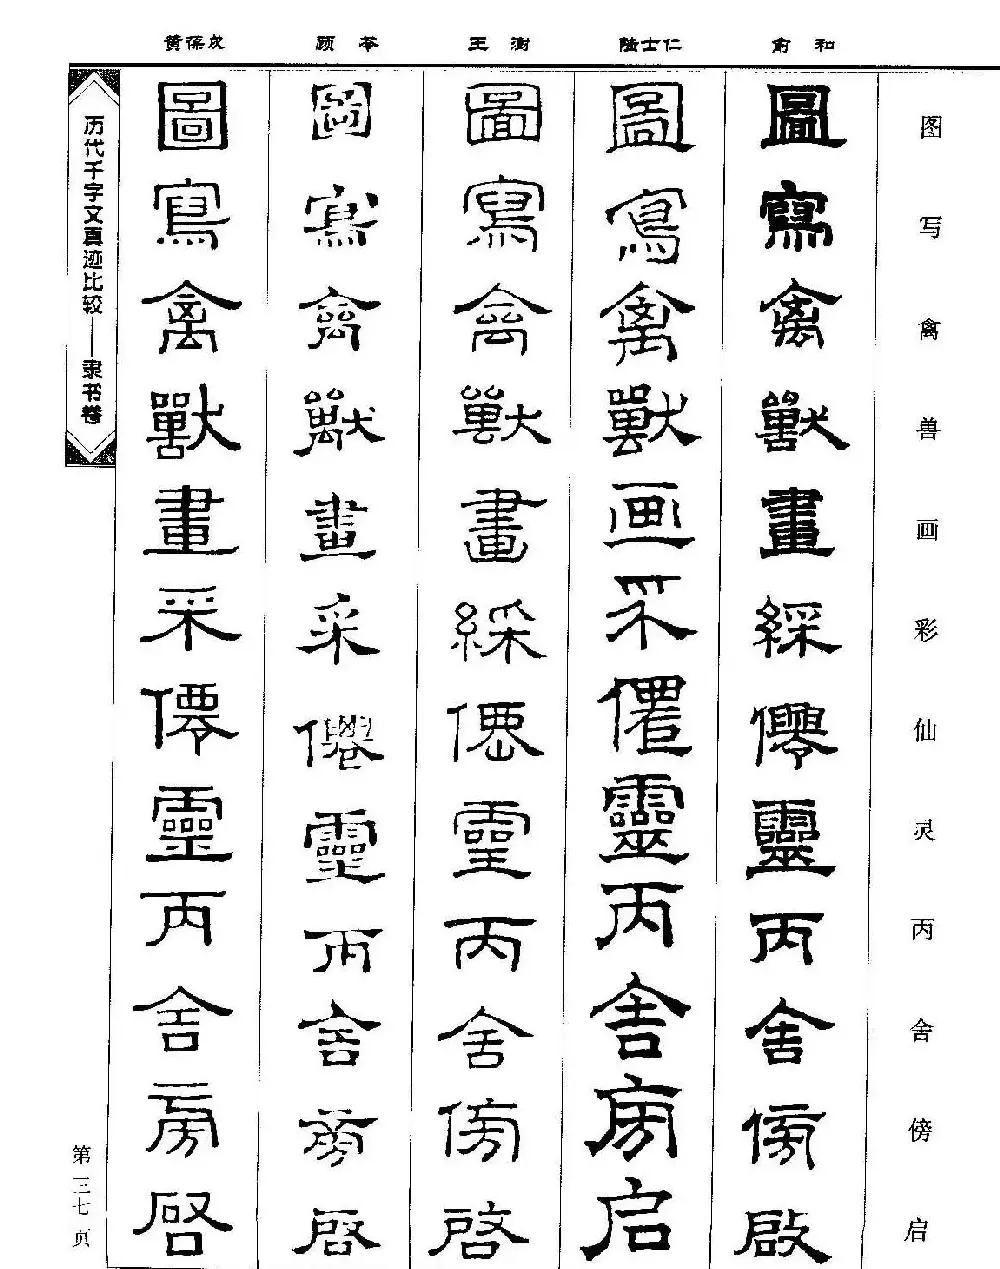 俞和
陆士仁
王澍
顾苓
黄葆戉
图写禽兽画彩仙灵丙舍傍启
圖寫禽獸畫綵僊靈丙舍傍啟
圖寫禽獸画采僊靈丙舍旁启
圖寫禽獸畫綵僊靈丙舍傍啓
圖寫禽獸畫采僊靈丙舍旁啓
圖寫禽獸畫采僊靈丙舍旁啓
历代千字文真迹比较——隶书卷
第三七页